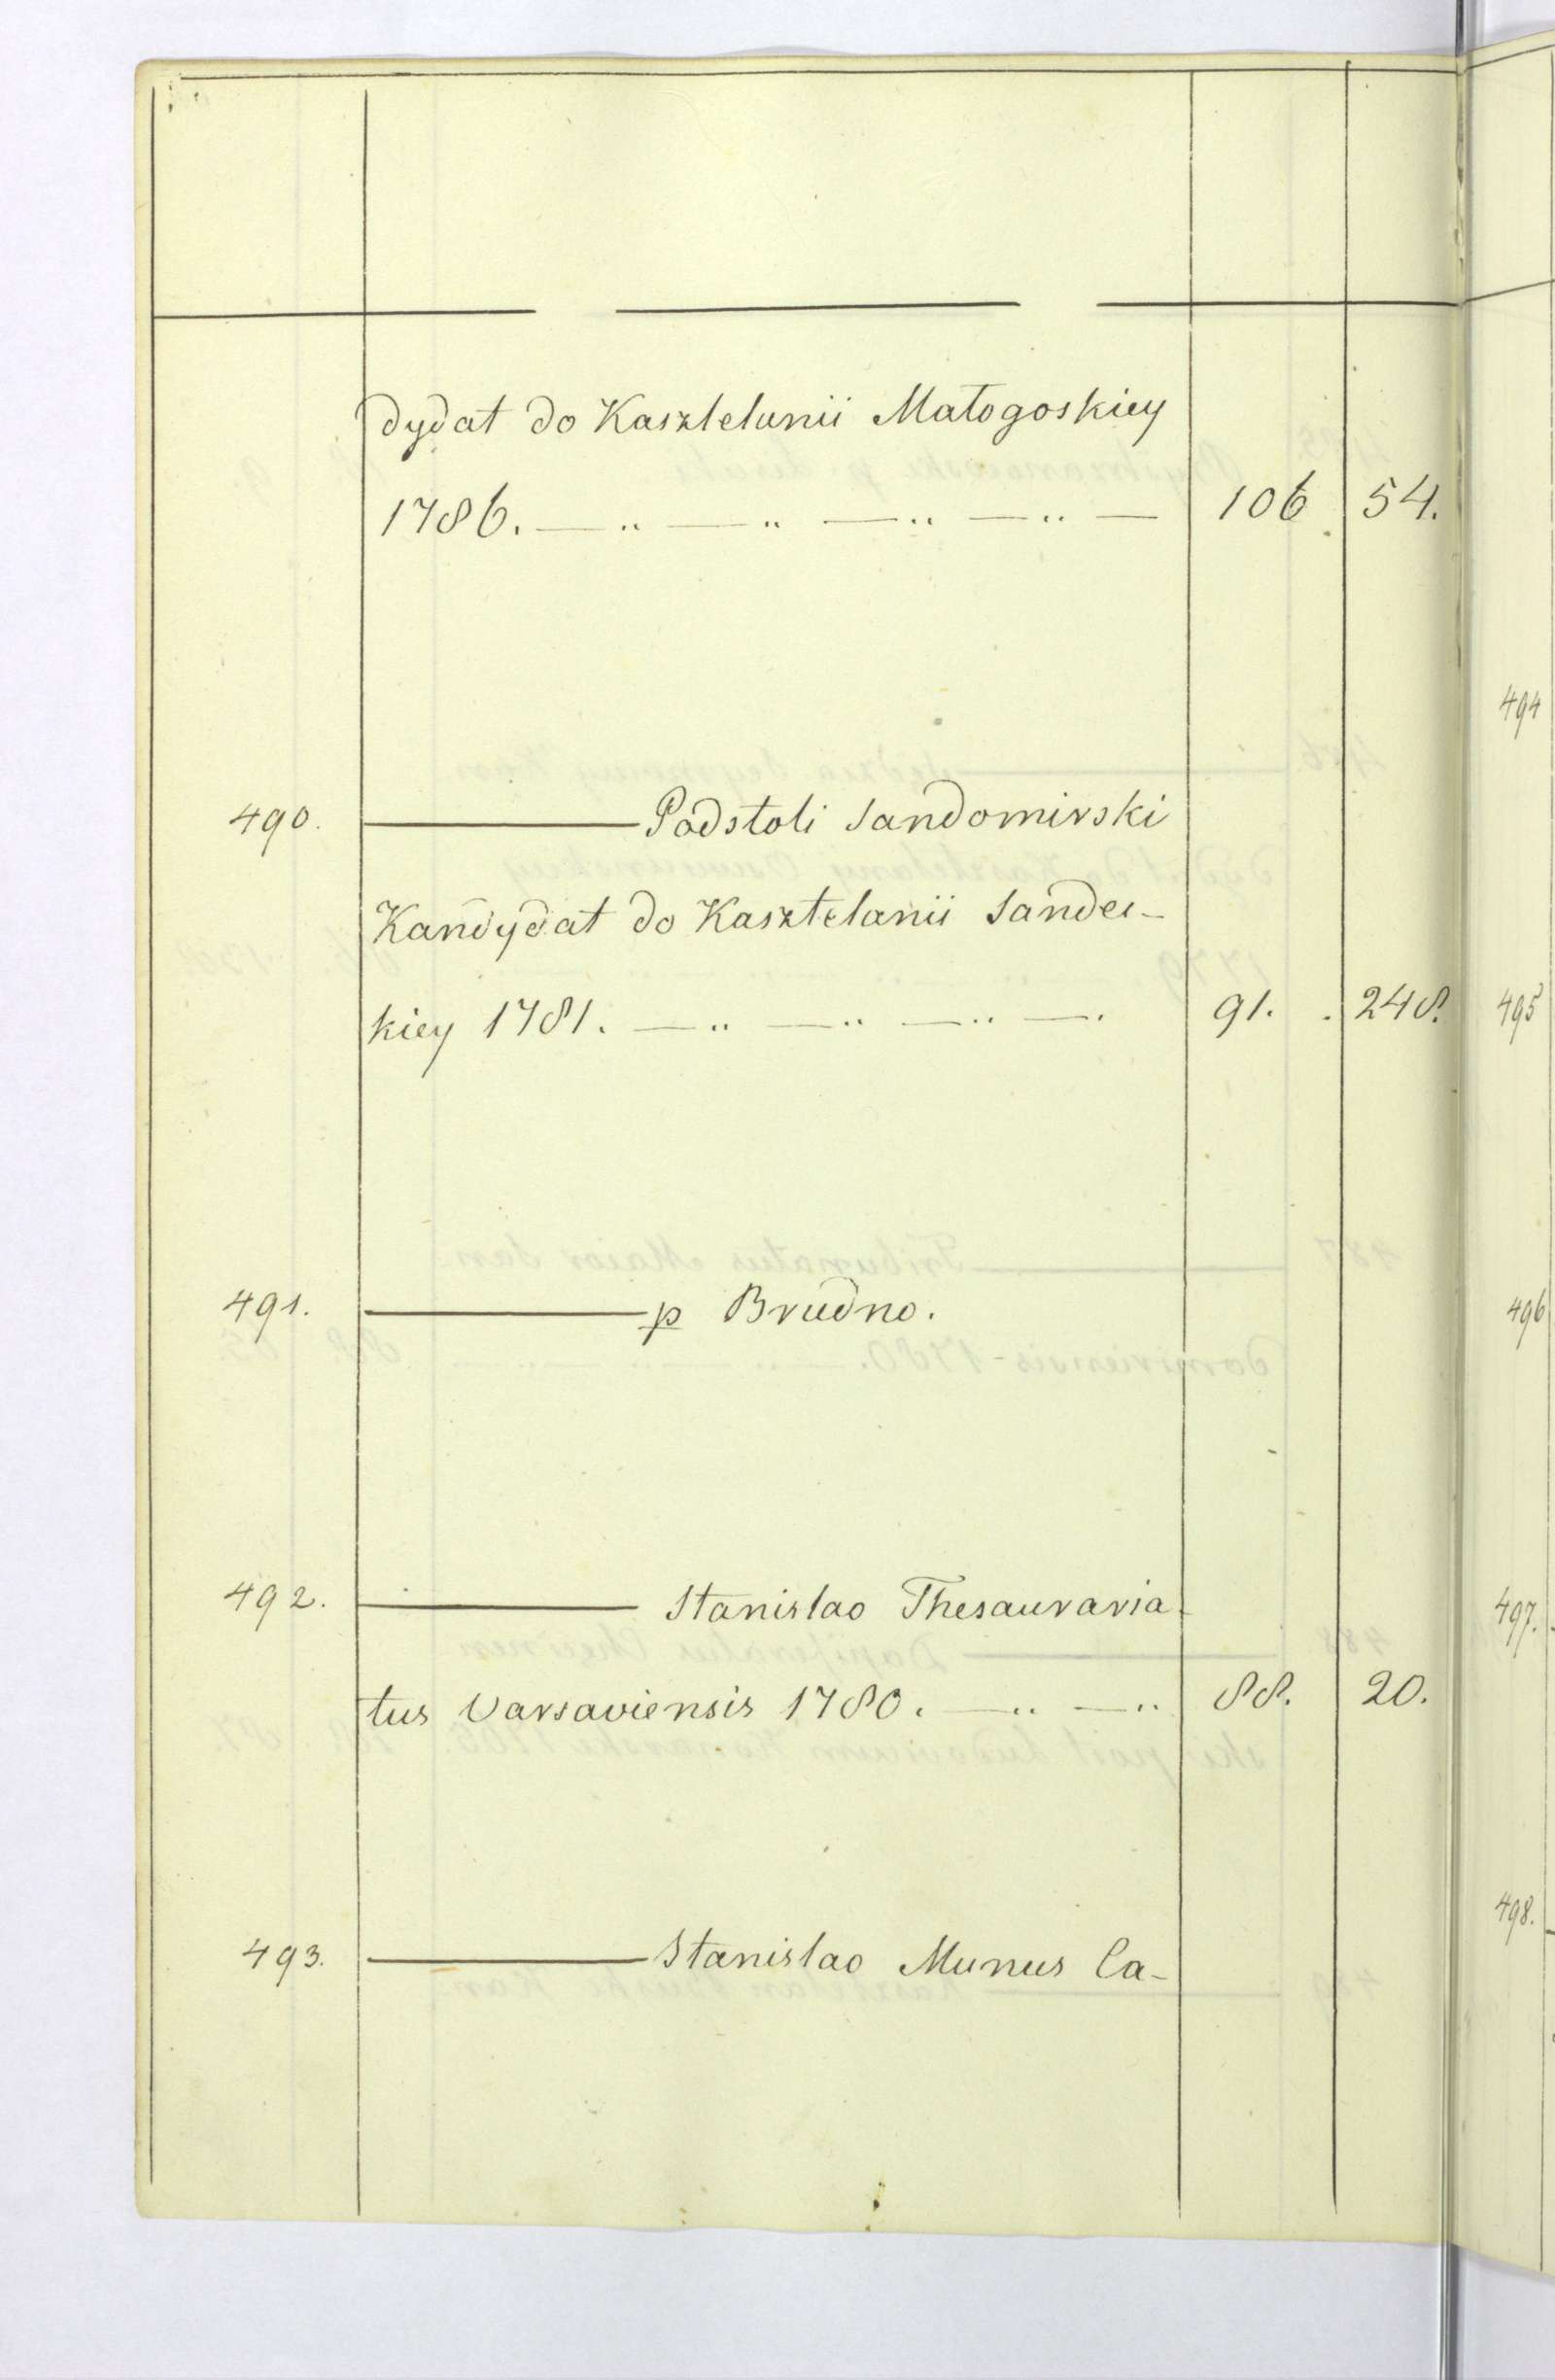 dydat do Kasztelanii Małogoskiey
1786. — .. — .. — .. — .. — 106 54.
490. ——— Podstoli Sandomirski
Kandydat do Kasztelanii Sandec-
kiey 1781. — .. — .. — .. — . 91. 248.
491. ——— p Brudno.
492. ——— Stanislao Thesauraria-
tus Varsaviensis 1780. — .. — .. 88. 20.
493. ——— Stanislao Munus Ca-
494
495
496
497.
498.